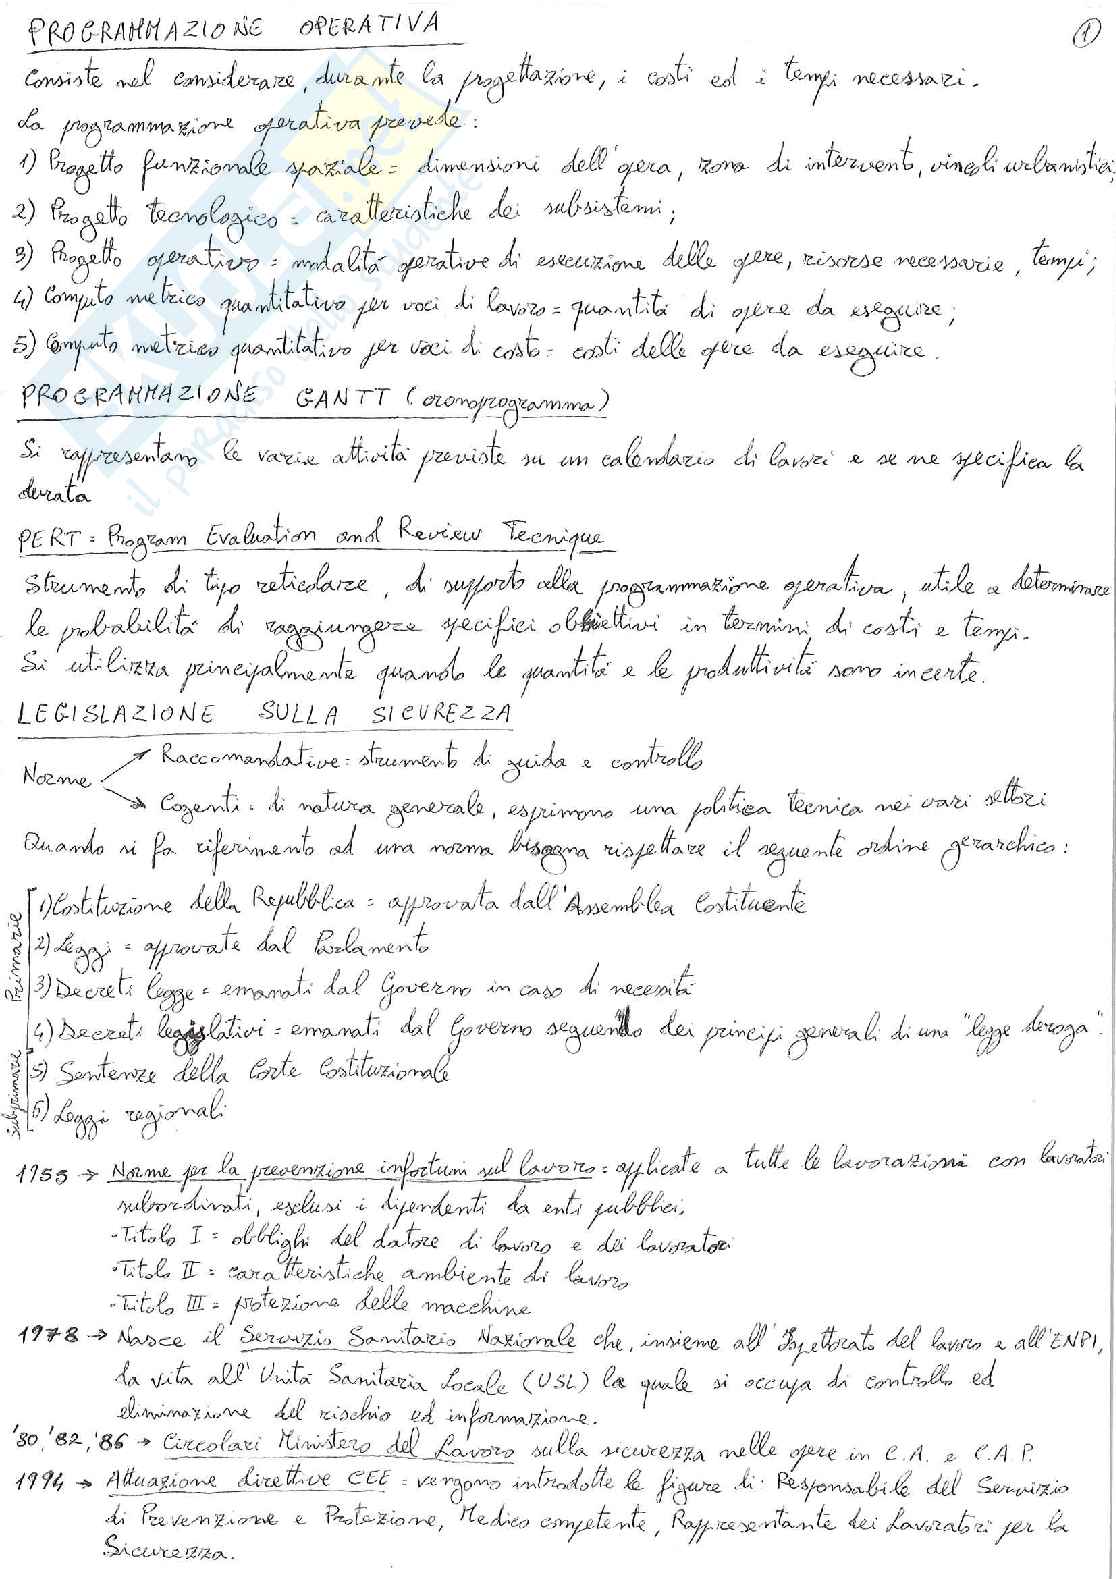 PROGRAMMAZIONE OPERATIVA
1
Consiste nel considerare, durante la progettazione, i costi ed i tempi necessari.
La programmazione operativa prevede:
1) Progetto funzionale spaziale = dimensioni dell'opera, zona di intervento, vincoli urbanistici;
2) Progetto tecnologico = caratteristiche dei subsistemi;
3) Progetto operativo = modalità operative di esecuzione delle opere, risorse necessarie, tempi;
4) Computo metrico quantitativo per voci di lavoro = quantità di opere da eseguire;
5) Computo metrico quantitativo per voci di costo = costi delle opere da eseguire.
PROGRAMMAZIONE GANTT (cronoprogramma)
Si rappresentano le varie attività previste su un calendario di lavori e se ne specifica la
durata
PERT = Program Evaluation and Review Tecnique
Strumento di tipo reticolare, di supporto alla programmazione operativa, utile a determinare
le probabilità di raggiungere specifici obbiettivi in termini di costi e tempi.
Si utilizza principalmente quando le quantità e le produttività sono incerte.
LEGISLAZIONE SULLA SICUREZZA
Raccomandative = strumento di guida e controllo
Norme
Cogenti = di natura generale, esprimono una politica tecnica nei vari settori
Quando si fa riferimento ad una norma bisogna rispettare il seguente ordine gerarchico:
Primarie
1) Costituzione della Repubblica = approvata dall'Assemblea Costituente
2) Leggi = approvate dal Parlamento
3) Decreti legge = emanati dal Governo in caso di necessità
4) Decreti legislativi = emanati dal Governo seguendo dei principi generali di una "legge deroga".
Subprimarie
5) Sentenze della Corte Costituzionale
6) Leggi regionali
1955 → Norme per la prevenzione infortuni sul lavoro = applicate a tutte le lavorazioni con lavoratori
subordinati, esclusi i dipendenti da enti pubblici.
-Titolo I = obblighi del datore di lavoro e dei lavoratori
-Titolo II = caratteristiche ambiente di lavoro
-Titolo III = protezione delle macchine
1978 → Nasce il Servizio Sanitario Nazionale che, insieme all'Ispettorato del lavoro e all'ENPI,
da vita all'Unità Sanitaria Locale (USL) la quale si occupa di controllo ed
eliminazione del rischio ed informazione.
'80, '82, '86 → Circolari Ministero del Lavoro sulla sicurezza nelle opere in C.A. e C.A.P.
1994 → Attuazione direttive CEE = vengono introdotte le figure di: Responsabile del Servizio
di Prevenzione e Protezione, Medico competente, Rappresentante dei Lavoratori per la
Sicurezza.